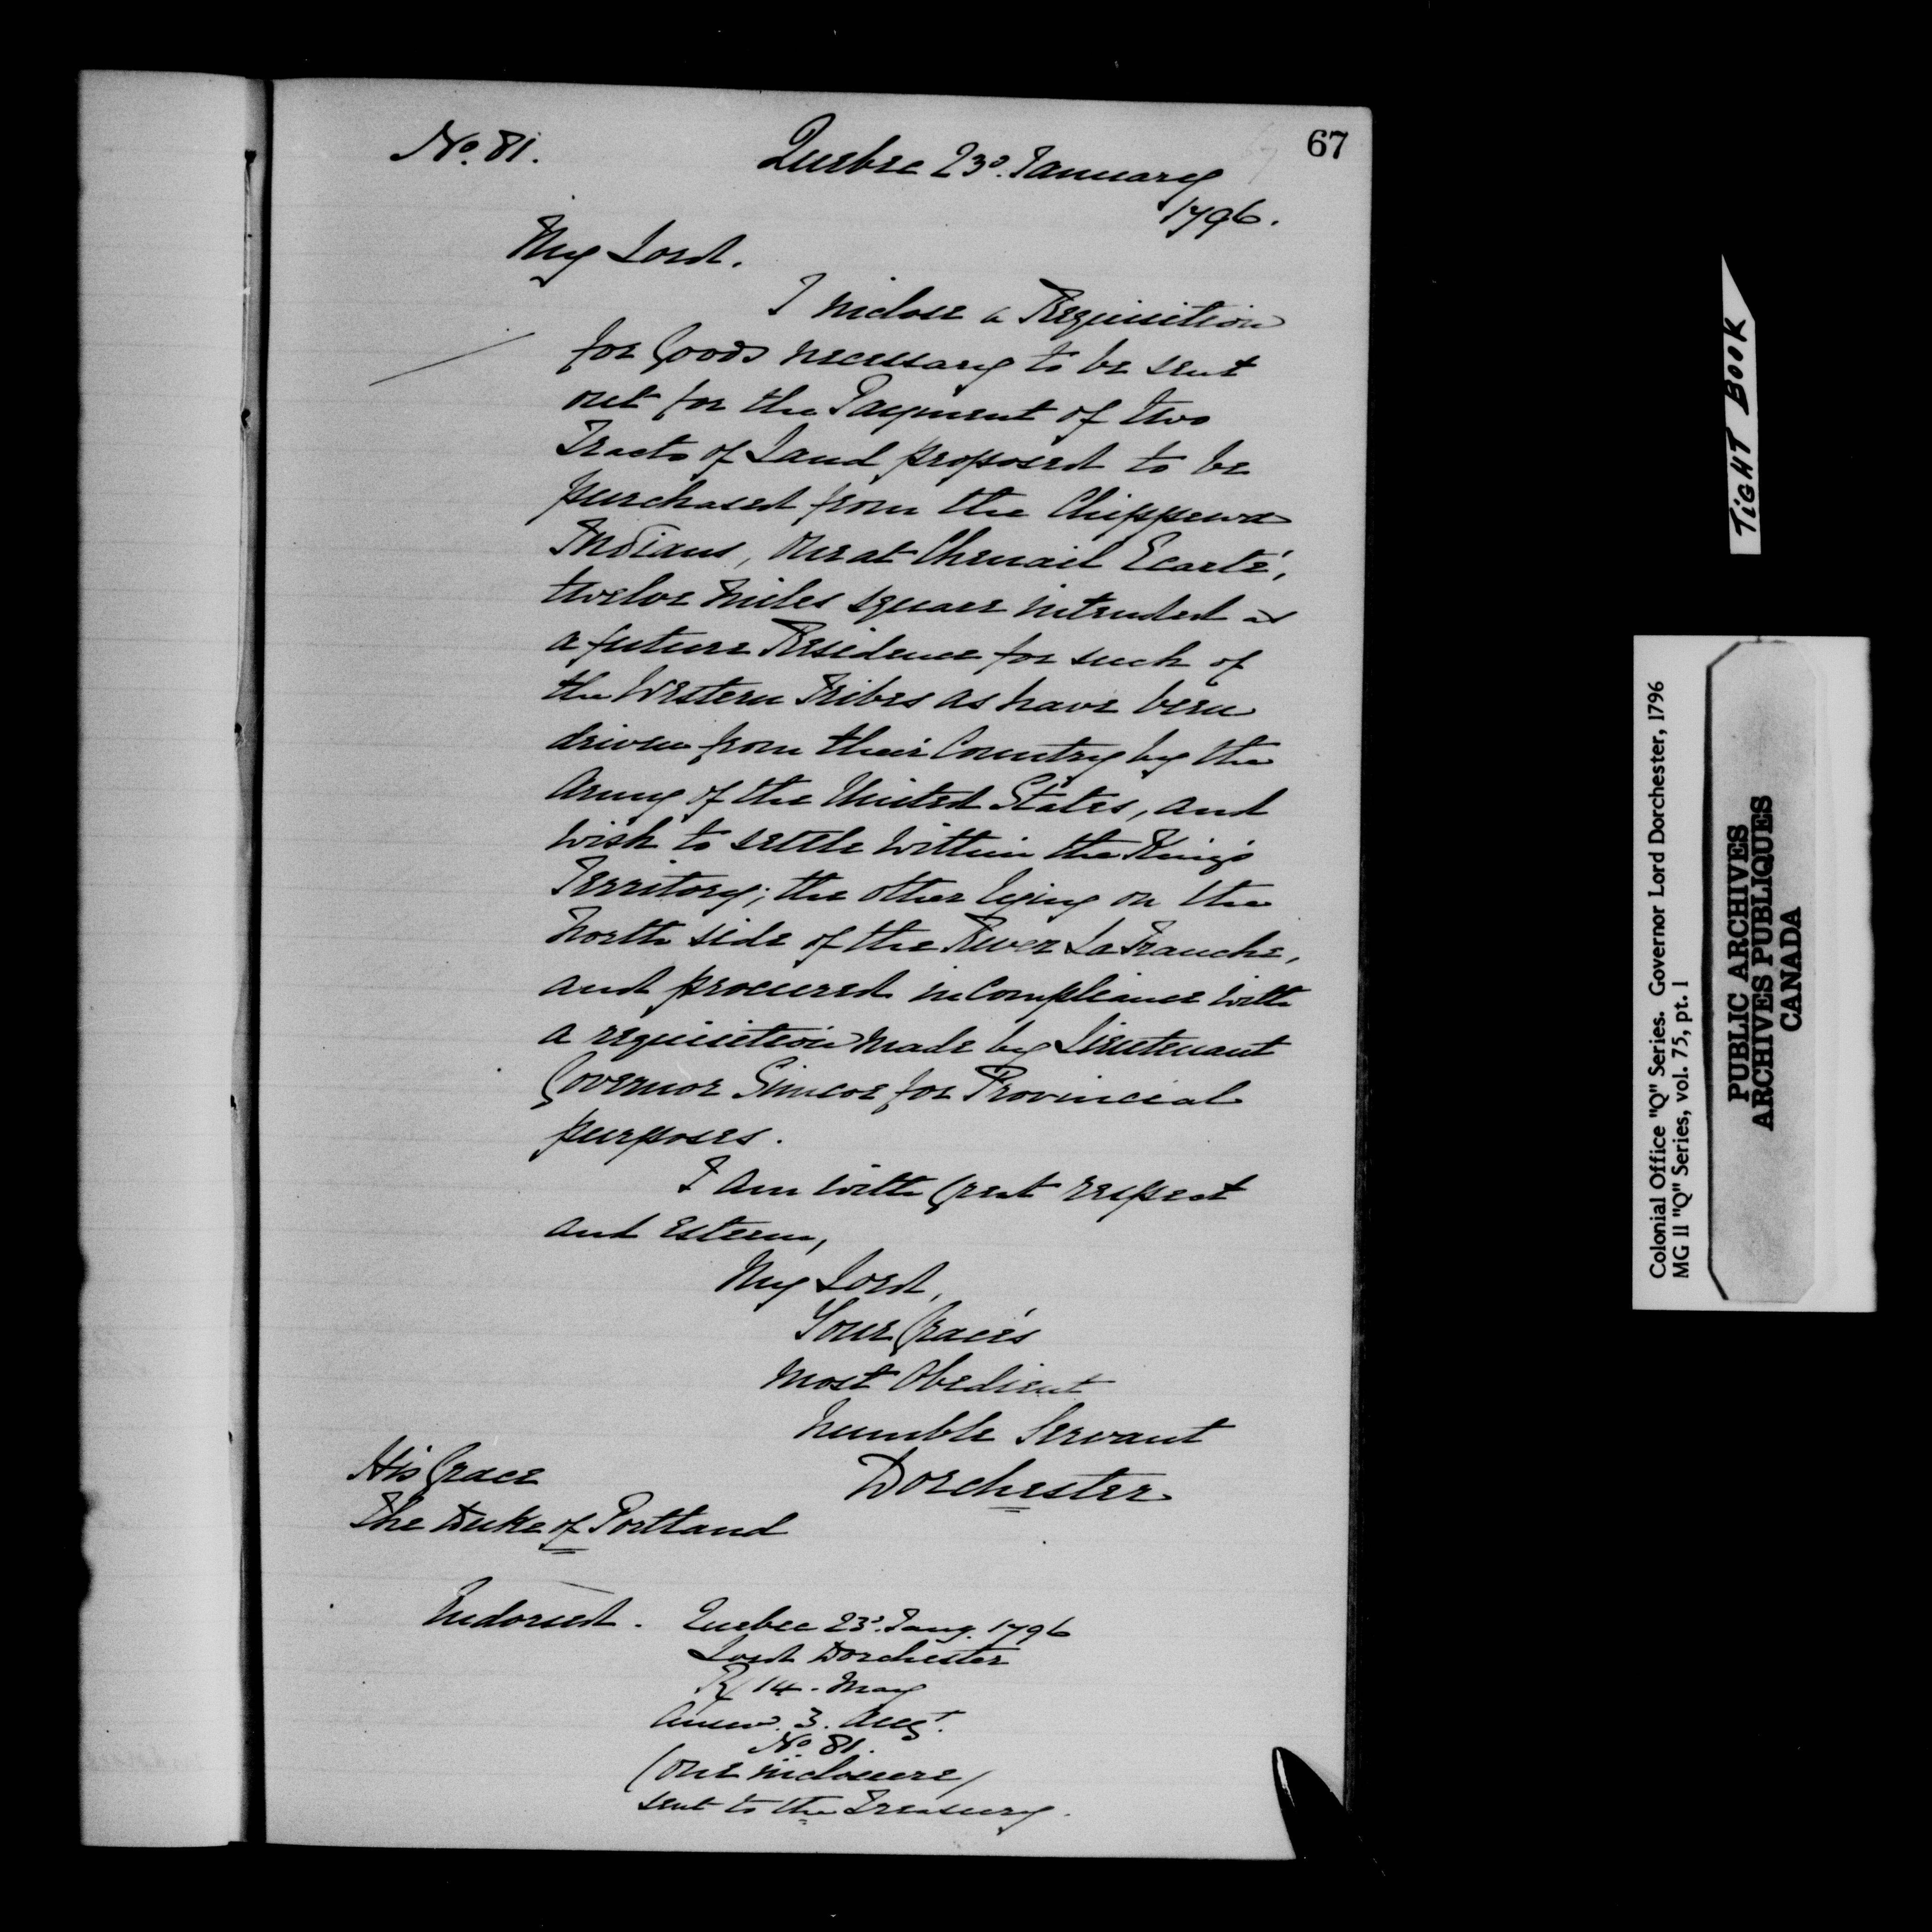 67
No. 81.
Quebec 23d. January
1796.
My Lord.
I inclose a Requisition
for Goods necessary to be sent
out for the Payment of two
Tracts of Land proposed to be
purchased from the Chippewa
Indians, one at Chenail Ecarté,
twelve miles square intended as
a future Residence for such of
the Western Tribes as have been
driven from their Country by the
Army of the United States, and
wish to settle within the King's
Territory; the other lying on the
North side of the River La Tranche,
and procured in compliance with
a requisition made by Lieutenant
Governor Simcoe for Provincial
purposes.
I am with great respect
and esteem,
My Lord,
Your Grace's
most Obedient
humble Servant
Dorchester
His Grace
The Duke of Portland
Indorsed. Quebec 23d. Jany. 1796
Lord Dorchester
R/ 14. May
Answd. 3. Augt.
No. 81.
(One inclosure)
sent to the Treasury.
TIGHT BOOK
Colonial Office "Q" Series. Governor Lord Dorchester, 1796
MG 11 "Q" Series, vol. 75, pt. 1
PUBLIC ARCHIVES
ARCHIVES PUBLIQUES
CANADA